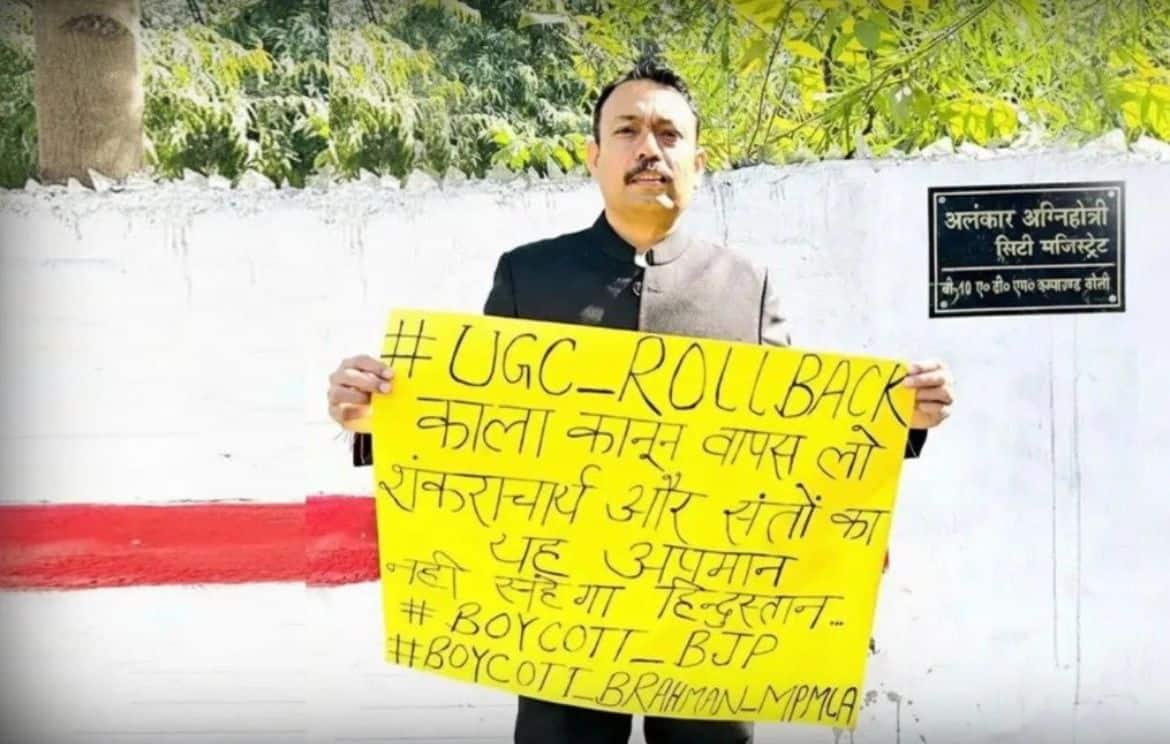 #UGC_ROLLBACK
काला कानून वापस लो
शंकराचार्य और संतों का
यह अपमान
नही सहेगा हिन्दुस्तान...
# BOYCOTT_BJP
#BOYCOTT_BRAHMAN_MPMLA
अलंकार अग्निहोत्री
सिटी मजिस्ट्रेट
बी,10 ए० डी० एम० कम्पाउण्ड